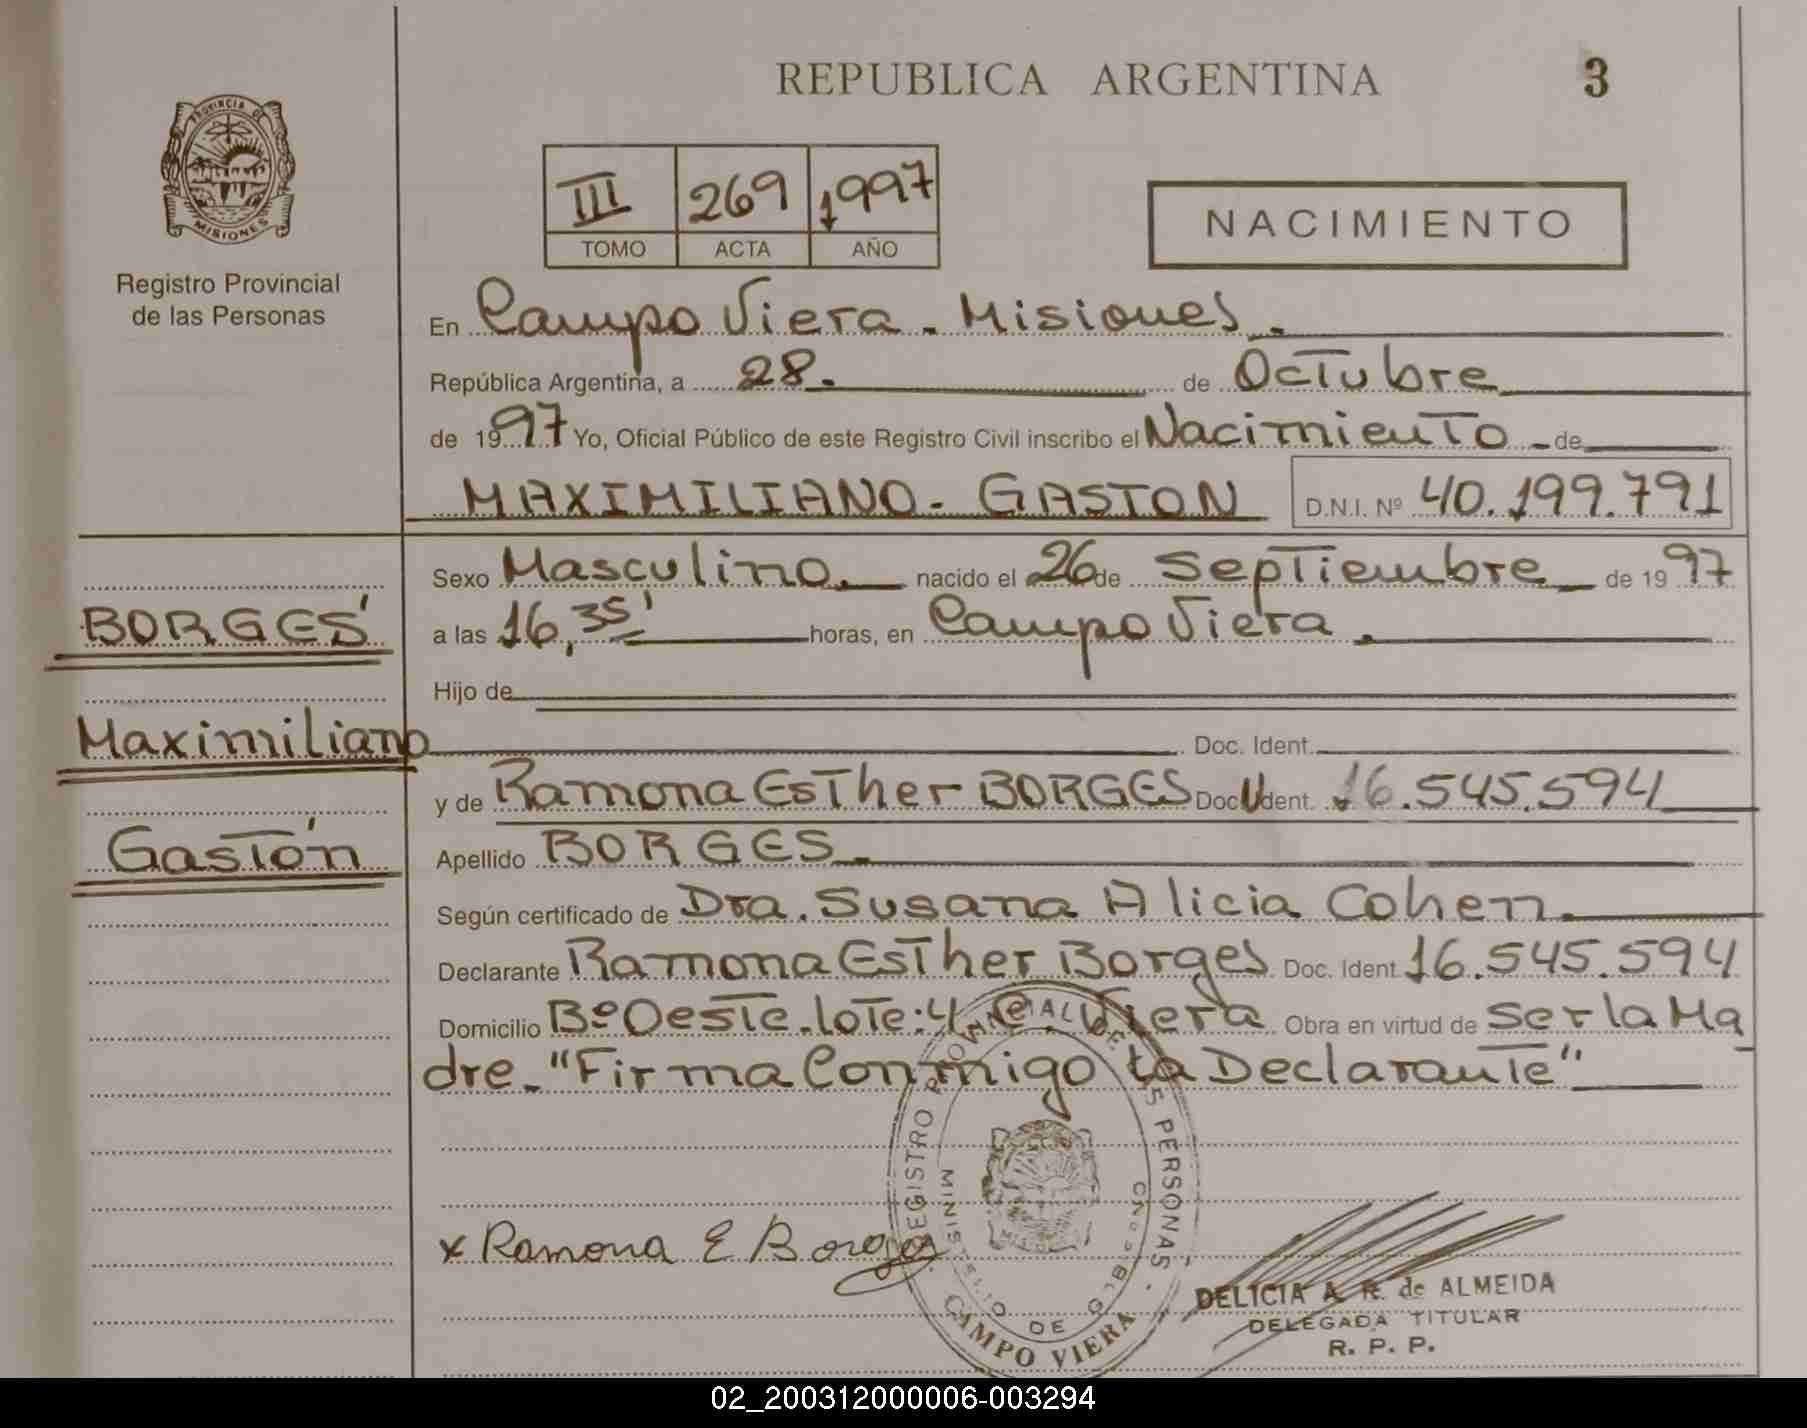 REPUBLICA ARGENTINA
3
PROVINCIA DE
MISIONES
Registro Provincial
de las Personas
III 269 1997
TOMO ACTA AÑO
NACIMIENTO
En Campo Viera - Misiones.
República Argentina, a 28. de Octubre
de 1997 Yo, Oficial Público de este Registro Civil inscribo el Nacimiento - de
MAXIMILIANO - GASTON D.N.I. Nº 40.199.791
Sexo Masculino. nacido el 26 de Septiembre de 1997
BORGES
a las 16,35' horas, en Campo Viera.
Hijo de
Maximiliano
Doc. Ident.
y de Ramona Esther BORGES Doc. U Ident. 16.545.594
Gastón
Apellido BORGES.
Según certificado de Dra. Susana Alicia Cohen.
Declarante Ramona Esther Borges Doc. Ident 16.545.594
Domicilio Bº Oeste. lote: 4 C. Viera Obra en virtud de ser la Ma
dre. "Firma Conmigo la Declarante"
REGISTRO PROVINCIAL DE LAS PERSONAS
MINISTERIO DE
CAMPO VIERA
x Ramona E Borges
DELICIA A. R. de ALMEIDA
DELEGADA TITULAR
R. P. P.
02_200312000006-003294